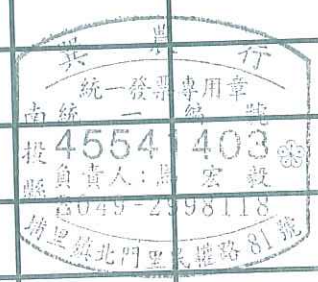 興農行
統一發票專用章
南投縣
統一編號
45541403
負責人：馬宏毅
☎049-2998118
埔里鎮北門里民權路81號